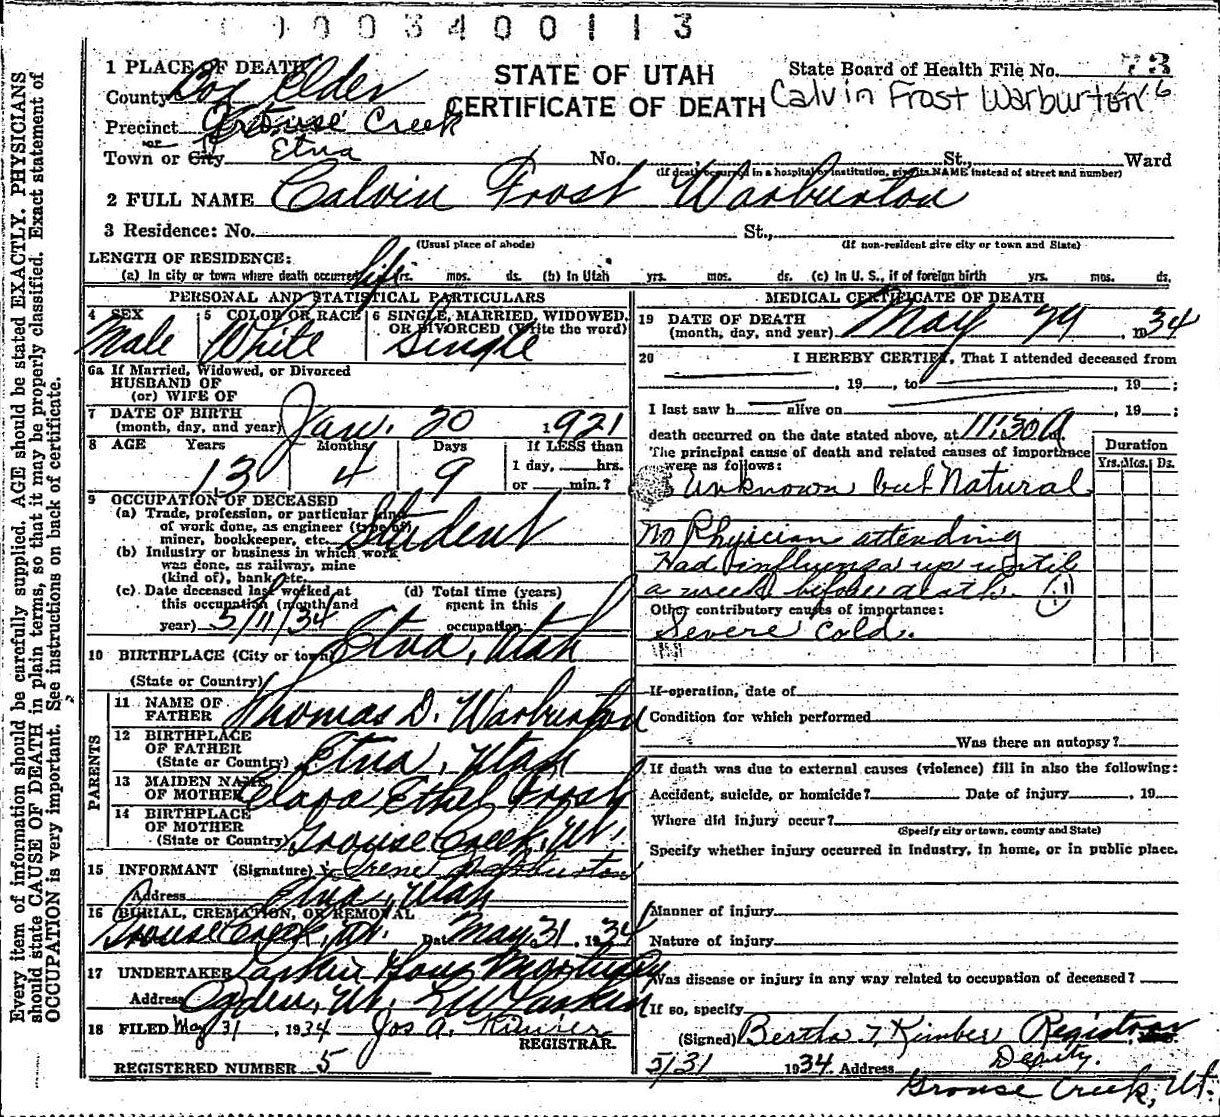 0003400113
1 PLACE OF DEATH
County Box Elder
STATE OF UTAH
CERTIFICATE OF DEATH
State Board of Health File No. 73
Calvin Frost Warburton
Precinct Grouse Creek
or
Town or City Etna No. St., Ward
(If death occurred in a hospital or institution, give its NAME instead of street and number)
2 FULL NAME Calvin Frost Warburton
3 Residence: No. St.,
(Usual place of abode) (If non-resident give city or town and State)
LENGTH OF RESIDENCE:
(a) In city or town where death occurred life yrs. mos. ds. (b) In Utah yrs. mos. ds. (c) In U. S., if of foreign birth yrs. mos. ds.
PERSONAL AND STATISTICAL PARTICULARS
4 SEX
Male
5 COLOR OR RACE
White
6 SINGLE, MARRIED, WIDOWED, OR DIVORCED (Write the word)
Single
6a If Married, Widowed, or Divorced
HUSBAND OF
(or) WIFE OF
7 DATE OF BIRTH
(month, day, and year) Jan. 20 1921
8 AGE Years Months Days If LESS than
13 4 9 1 day, hrs.
or min.?
9 OCCUPATION OF DECEASED
(a) Trade, profession, or particular kind
of work done, as engineer (type of)
miner, bookkeeper, etc. Student
(b) Industry or business in which work
was done, as railway, mine
(kind of), bank, etc.
(c) Date deceased last worked at
this occupation (month and
year) 5/11/34
(d) Total time (years)
spent in this
occupation
10 BIRTHPLACE (City or town) Etna, Utah
(State or Country)
PARENTS
11 NAME OF
FATHER Thomas D. Warburton
12 BIRTHPLACE
OF FATHER
(State or Country) Etna, Utah
13 MAIDEN NAME
OF MOTHER Clara Ethel Frost
14 BIRTHPLACE
OF MOTHER
(State or Country) Grouse Creek, Ut.
15 INFORMANT (Signature) Irene Warburton
Address Etna, Utah
16 BURIAL, CREMATION, OR REMOVAL
Grouse Creek, Ut. Date May 31, 1934
17 UNDERTAKER Larkin Sons Mortuary
Address Ogden, Ut. E W Larkin
18 FILED May 31, 1934 Jos A. Kimber
REGISTRAR.
REGISTERED NUMBER 5
MEDICAL CERTIFICATE OF DEATH
19 DATE OF DEATH
(month, day, and year) May 29, 1934
20 I HEREBY CERTIFY, That I attended deceased from
, 19 , to , 19 ;
I last saw h alive on , 19 ;
death occurred on the date stated above, at 11:30 A.
The principal cause of death and related causes of importance
were as follows:
Duration
Yrs. Mos. Ds.
Unknown but Natural
No Physician attending
Had influenza up until
a week before death. 11
Other contributory causes of importance:
Severe cold.
If operation, date of
Condition for which performed
Was there an autopsy?
If death was due to external causes (violence) fill in also the following:
Accident, suicide, or homicide? Date of injury , 19
Where did injury occur?
(Specify city or town, county and State)
Specify whether injury occurred in Industry, in home, or in public place.
Manner of injury
Nature of injury
Was disease or injury in any way related to occupation of deceased?
If so, specify
(Signed) Bertha T. Kimber Registrar
Deputy.
5/31 1934 Address Grouse Creek, Ut.
Every item of information should be carefully supplied. AGE should be stated EXACTLY. PHYSICIANS
should state CAUSE OF DEATH in plain terms, so that it may be properly classified. Exact statement of
OCCUPATION is very important. See instructions on back of certificate.